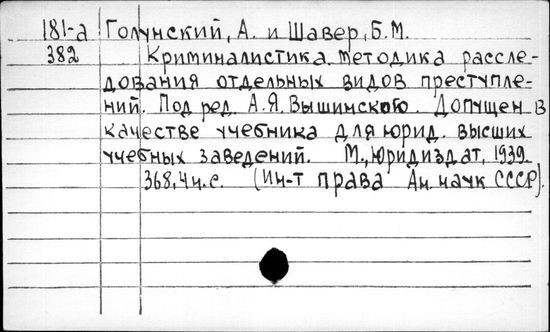 181-а Голунский, А. и Шавер, Б.М.
382 Криминалистика. Методика рассле-
дования отдельных видов преступле-
ний. Под ред. А.Я. Вышинского. Допущен в
качестве учебника для юрид. высших
учебных заведений. М., Юриздат, 1939.
368, 4 н.с. (Ин-т права Ак. наук СССР).